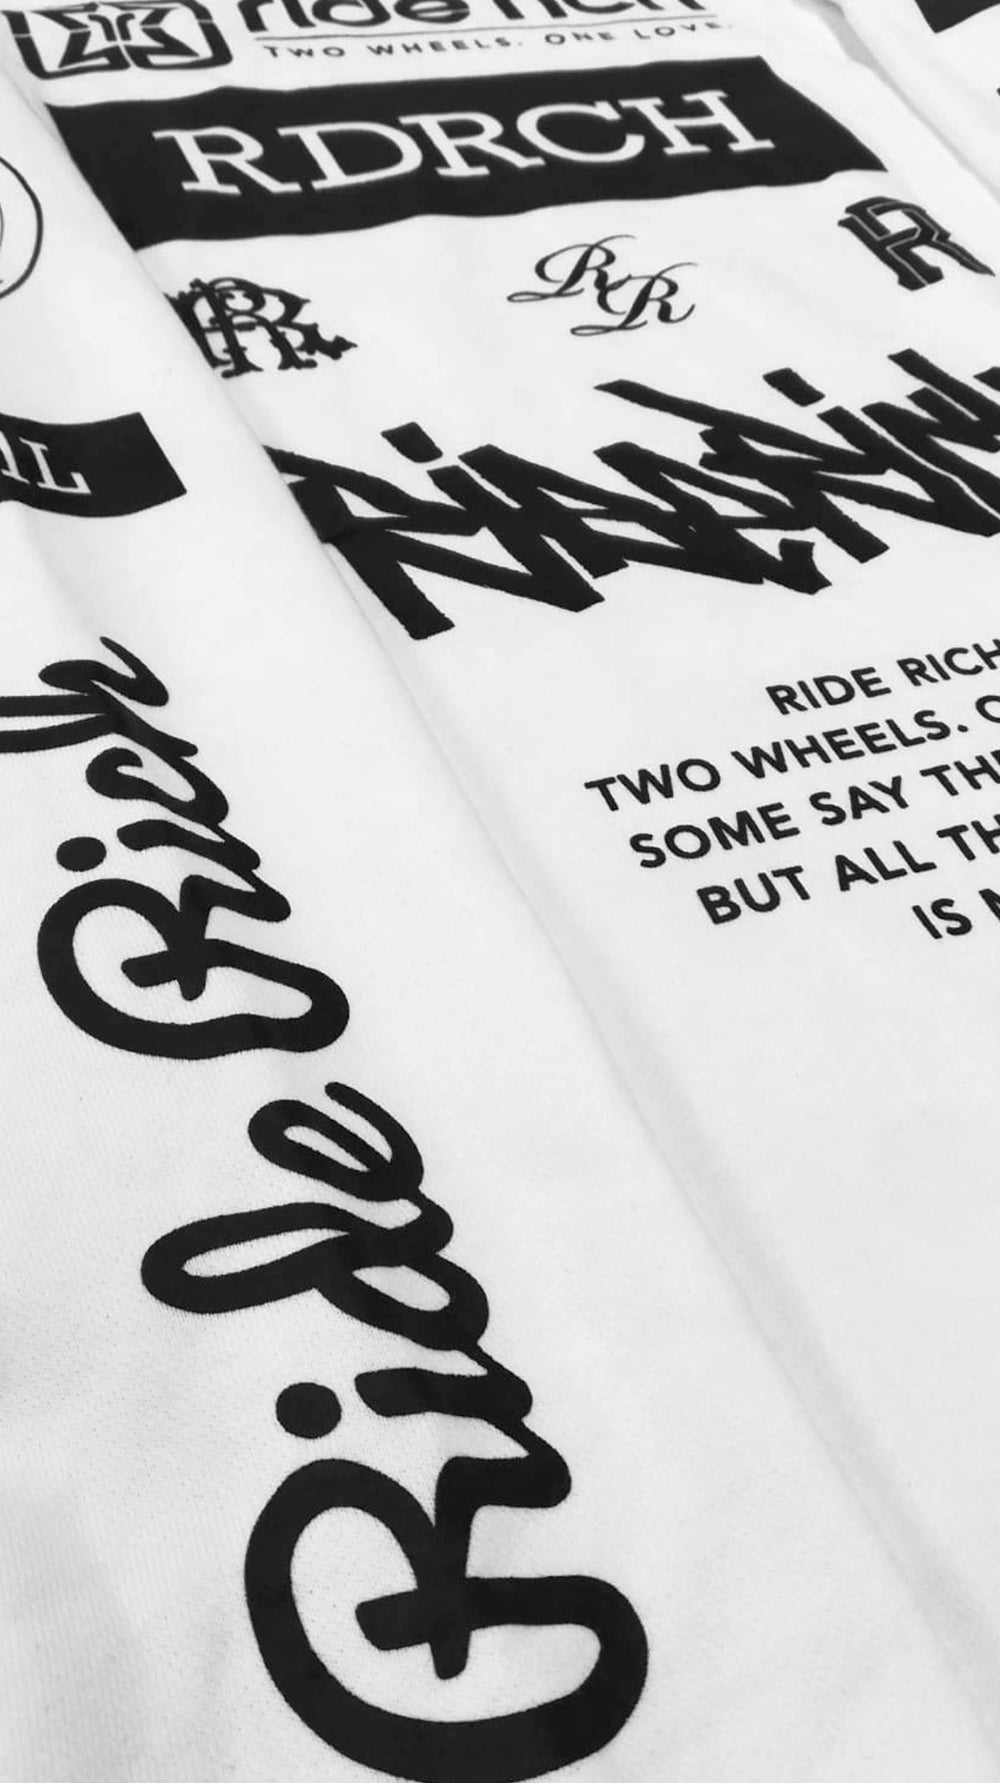 ride rich
TWO WHEELS. ONE LOVE.
RDRCH
RR
RR
RR
IL
RIDERICH
RIDE RICH
TWO WHEELS. O
SOME SAY THE
BUT ALL TH
IS
Ride Rich